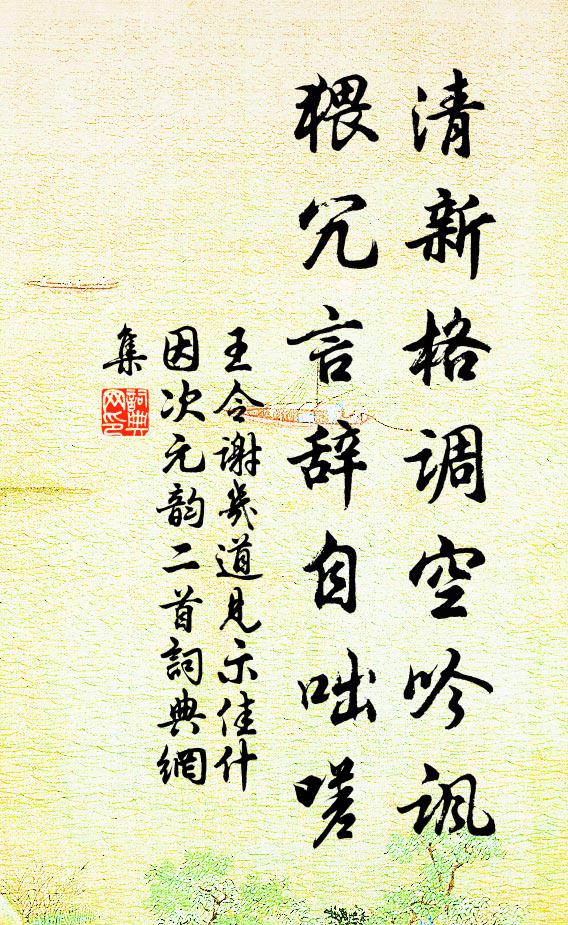 清新格调空吟讽
猥冗言辞自咄嗟
王令谢幾道见示佳什
因次元韵二首詞典網
集
詞典网印